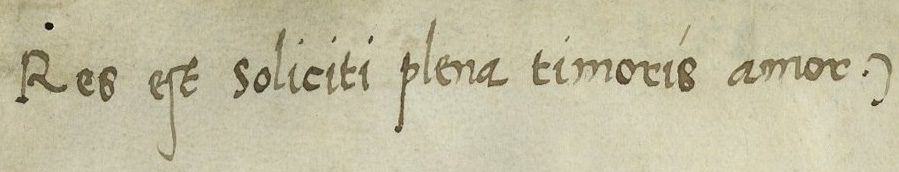 Res est soliciti plena timoris amor.